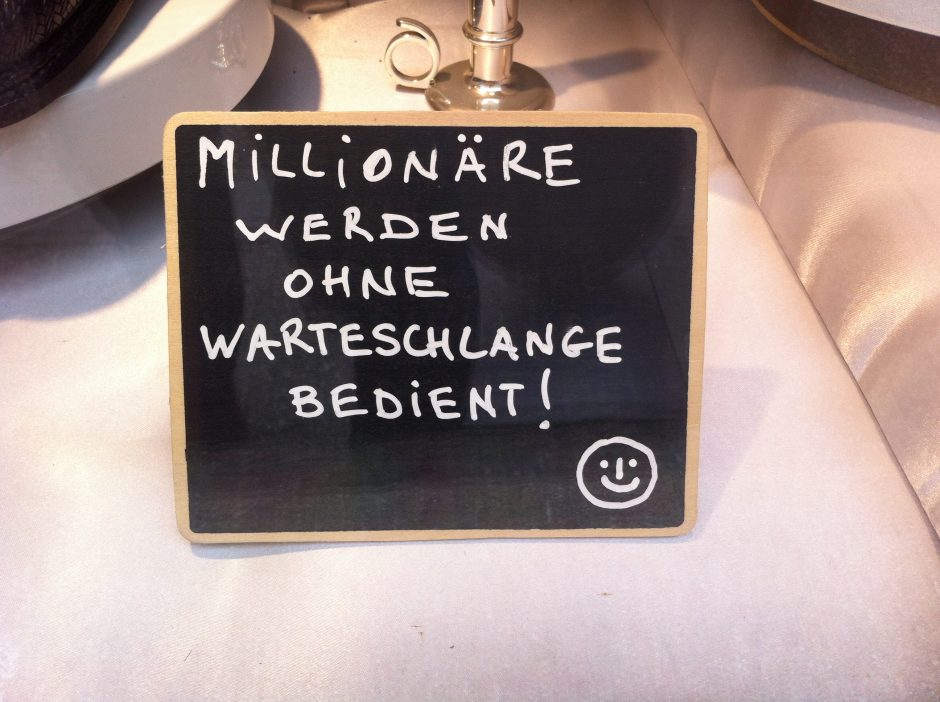 MILLIONÄRE
WERDEN
OHNE
WARTESCHLANGE
BEDIENT!